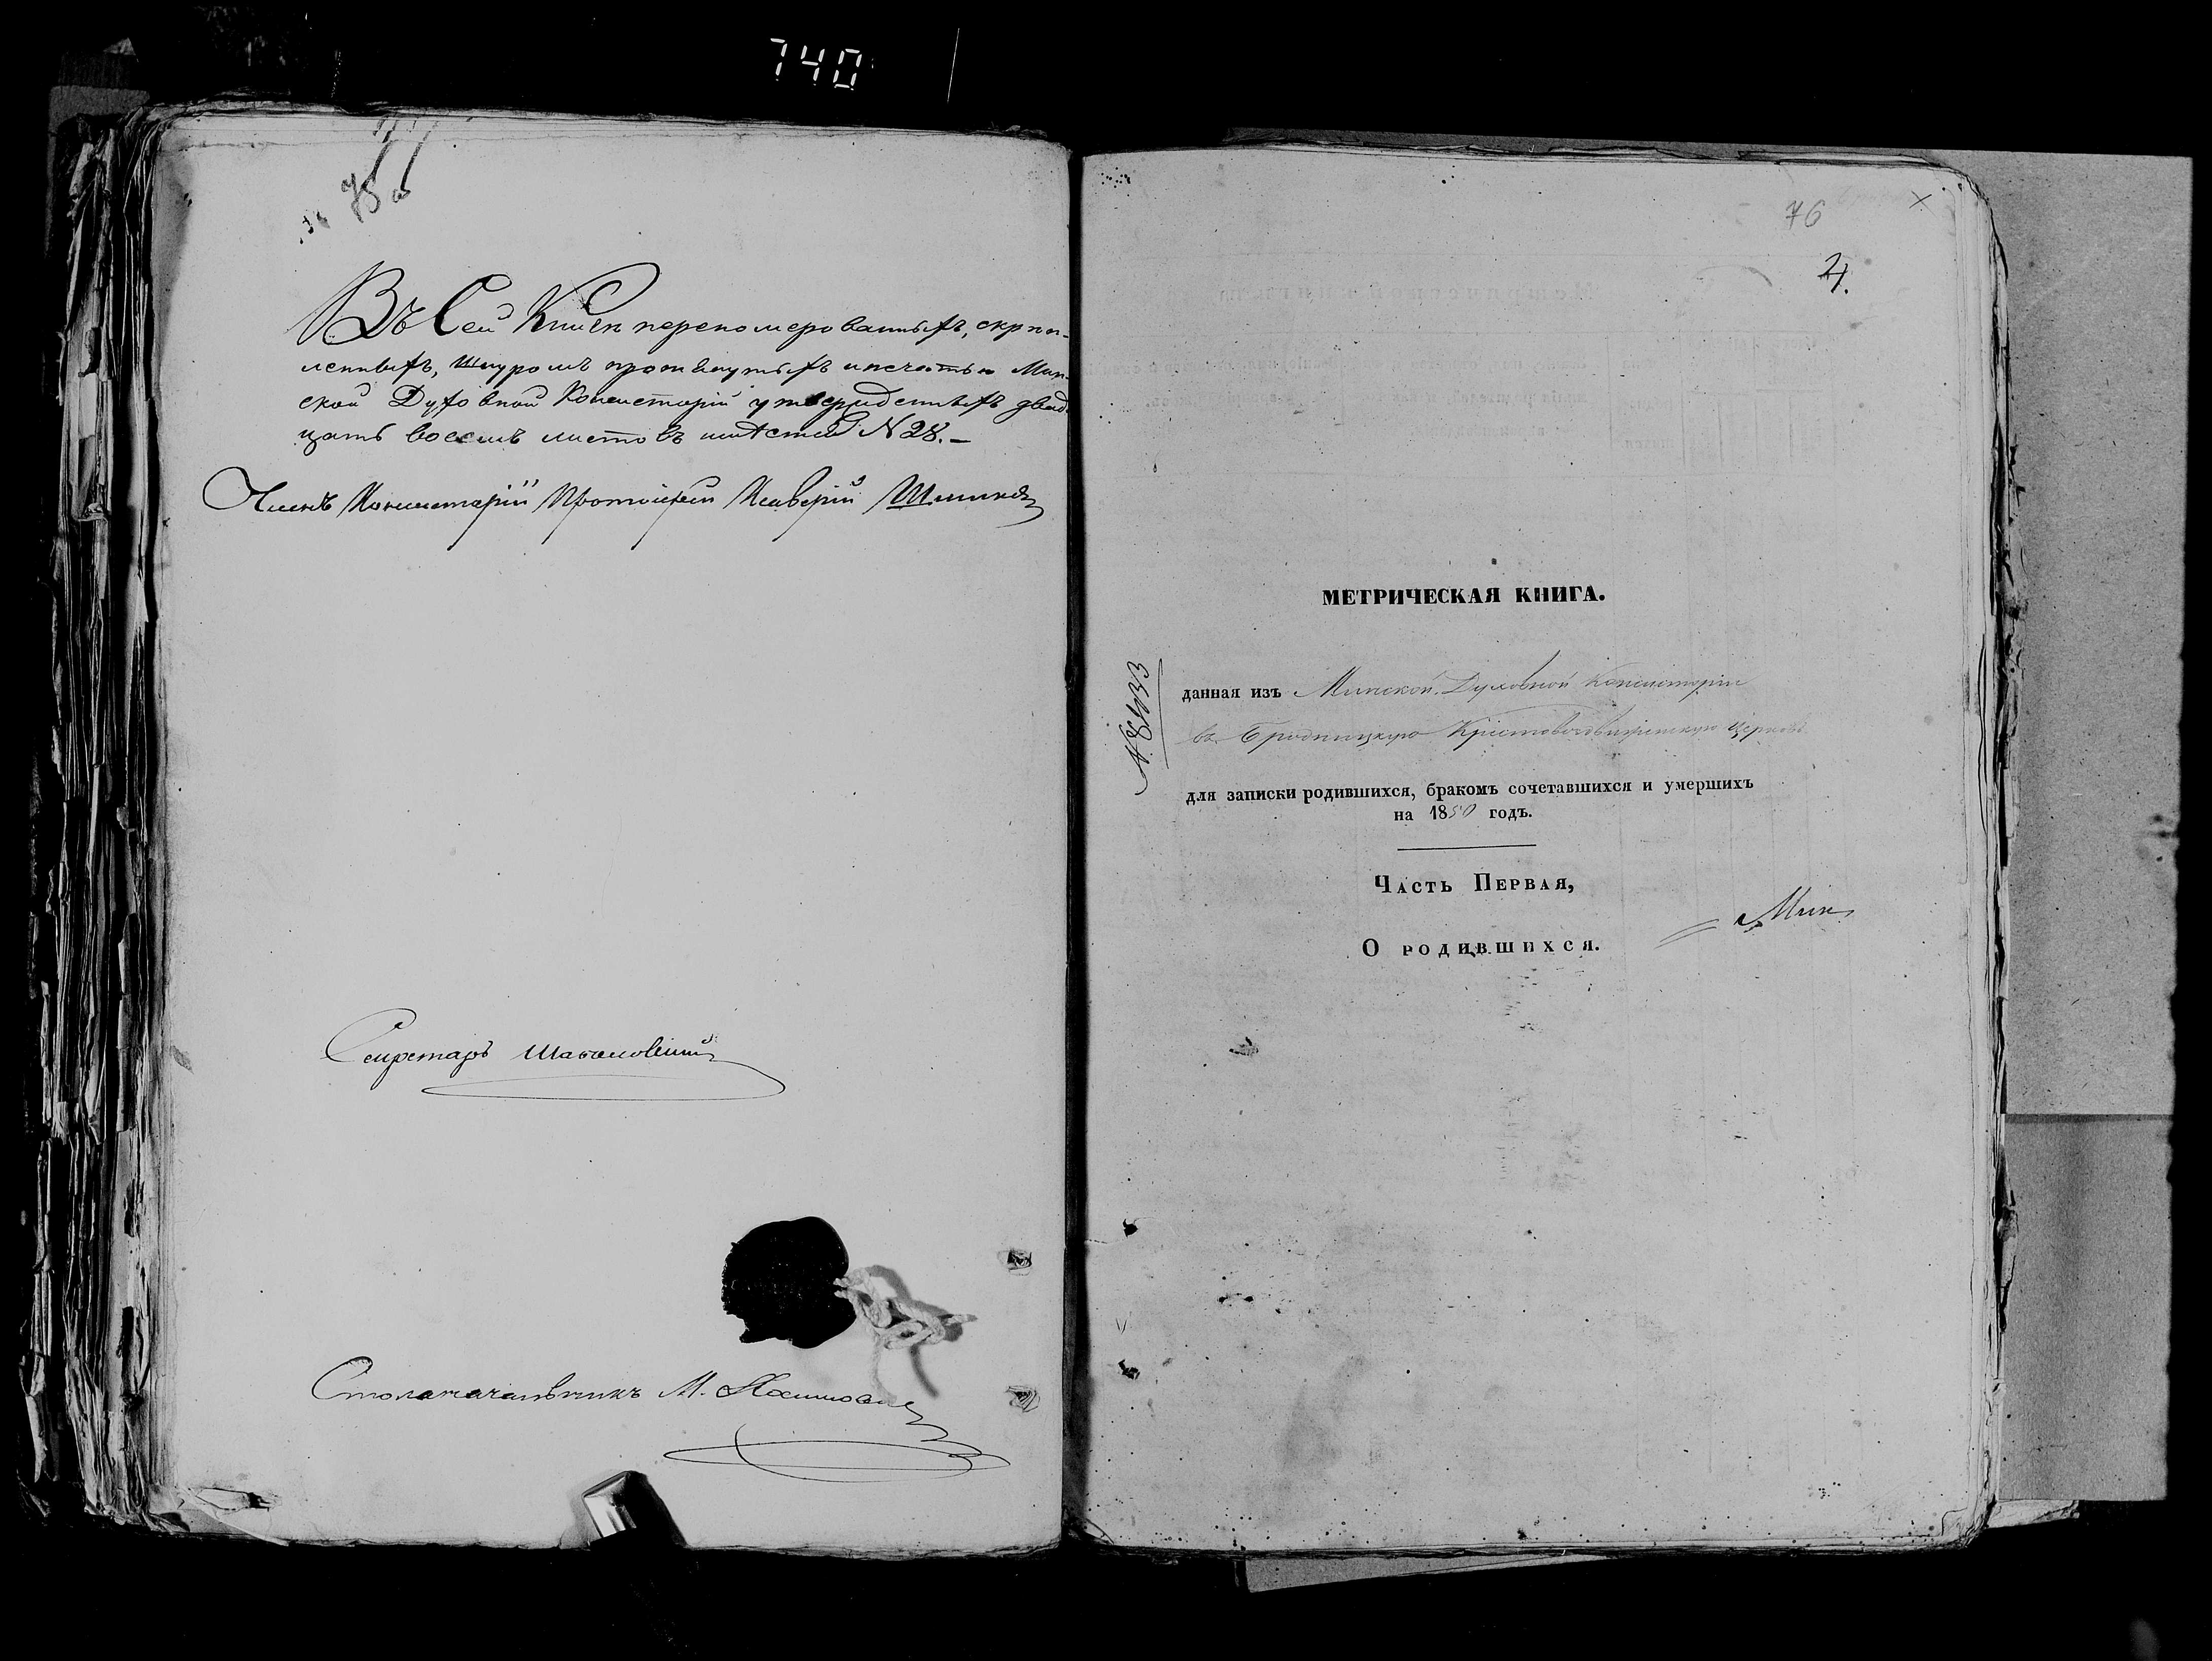 740
75
Въ сей Книгѣ перенумерованныхъ, скрѣп-
ленныхъ, шнуромъ протянутыхъ и печатью Мин-
ской Духовной Консисторіи утвержденныхъ двад-
цать восемь листовъ N 28.
Членъ Консисторіи Протоіерей
Секретарь
Столоначальникъ М.
76
4.
МЕТРИЧЕСКАЯ КНИГА.
данная изъ Минской Духовной Консисторіи
въ Бродницкую Крестовоздвиженскую церковь
для записки родившихся, бракомъ сочетавшихся и умершихъ
на 1850 годъ.
Часть Первая,
О родившихся.
Мин